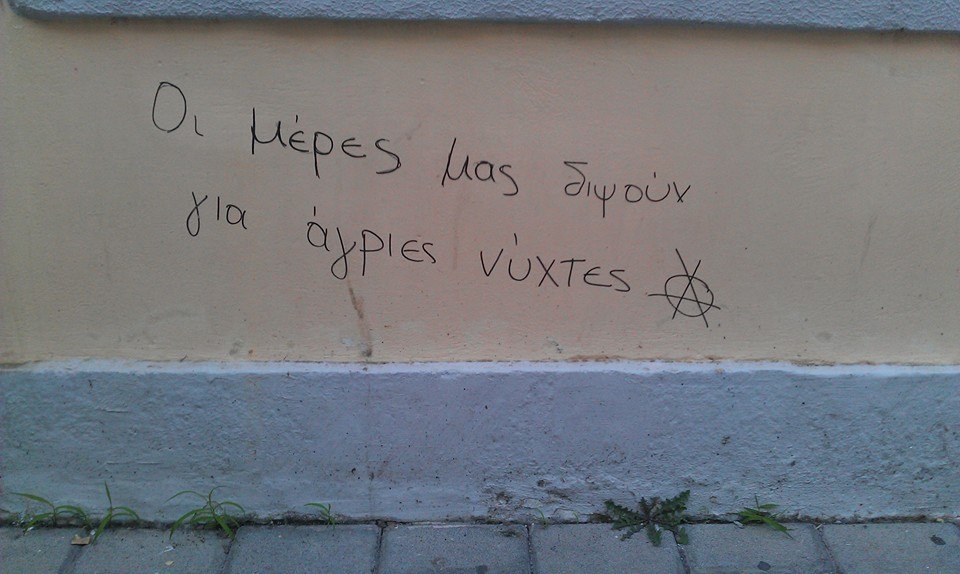 Οι μέρες μας διψούν
για άγριες νύχτες Ⓐ